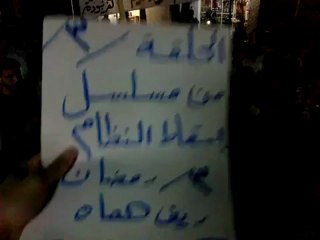 الحلقة /٣/
من مسلسل
إسقاط النظام
٣ رمضان
ريف حماه